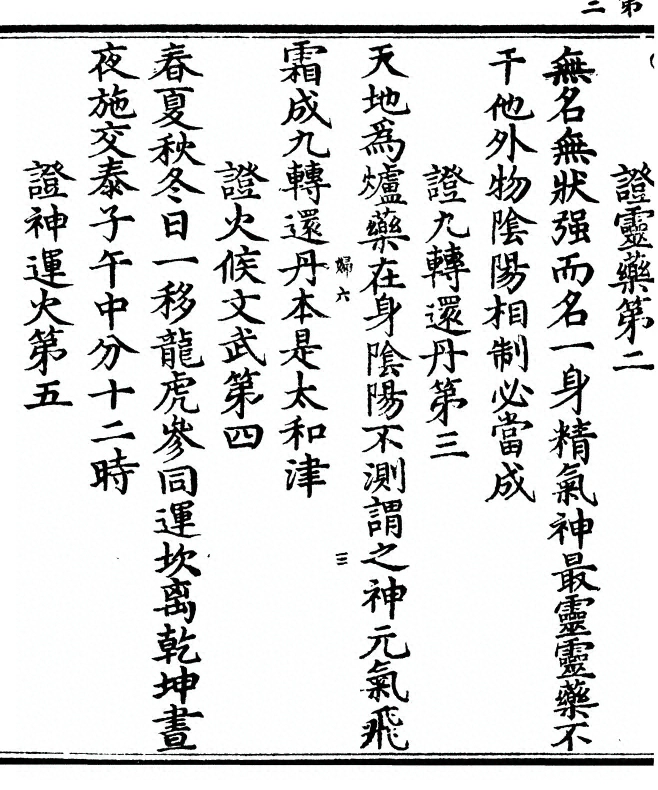 第二
證靈藥第二
無名無狀强而名一身精氣神最靈靈藥不
干他外物陰陽相制必當成
證九轉還丹第三
天地為爐藥在身陰陽不測謂之神元氣飛
婦六
三
霜成九轉還丹本是太和津
證火候文武第四
春夏秋冬日一移龍虎參同運坎离乾坤晝
夜施交泰子午中分十二時
證神運火第五